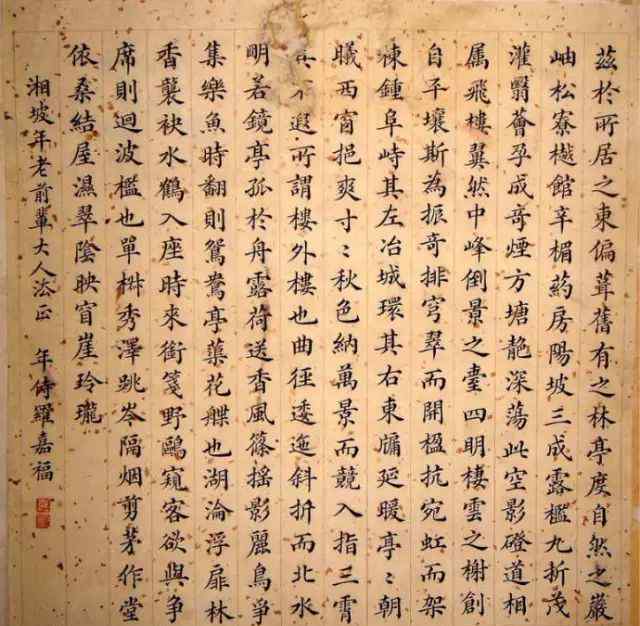 茲於所居之東偏葺舊有之林亭度自然之巖
岫松寮樾館辛楣葯房陽坡三成露檻九折茂
灌翳薈孕成奇煙方塘靘深蕩此空影磴道相
属飛樓翼然中峰倒景之臺四明棲雲之榭創
自平壤斯為振奇排穹翠而開楹抗宛虹而架
棟鍾阜峙其左冶城環其右東牖延暖亭〻朝
曦西窗挹爽寸〻秋色納萬景而競入指三霄
不遐所謂樓外樓也曲徑逶迤斜折而北水
明若鏡亭孤於舟露荷送香風篠摇影麗鳥爭
集樂魚時翻則鴛鴦亭蕖花艓也湖淪浮扉林
香襲袂水鶴入座時來銜箋野鷗窺客欲與争
席則迴波檻也單椒秀澤跳岑隔烟剪茅作堂
依桑結屋濕翠陰映窅崖玲瓏
湘坡年老前輩大人法正 年侍羅嘉福